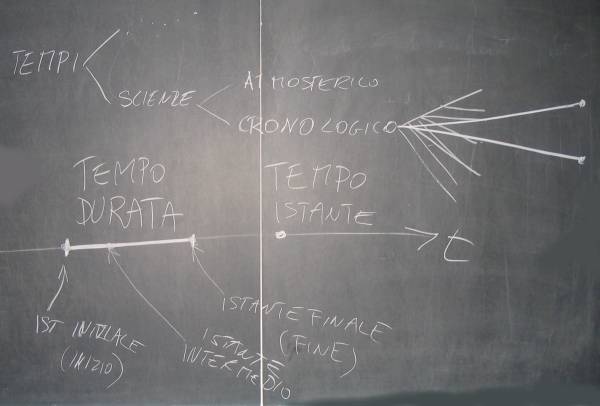 TEMPI
SCIENZE
ATMOSFERICO
CRONOLOGICO
TEMPO
DURATA
TEMPO
ISTANTE
t
IST INIZIALE
(INIZIO)
ISTANTE
INTERMEDIO
ISTANTE FINALE
(FINE)